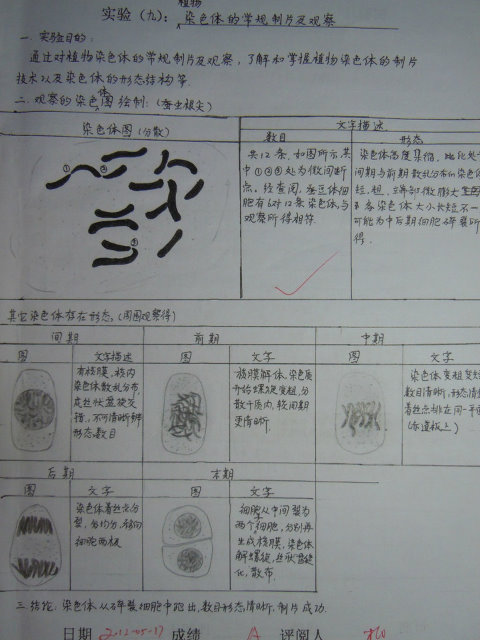 植物
实验(九): 染色体的常规制片及观察
一. 实验目的:
通过对植物染色体的常规制片及观察,了解和掌握植物染色体的制片
技术以及染色体的形态结构等.
二. 观察的染色体图绘制: (蚕豆根尖)
染色体图(分散)
文字描述
数目
形态
共12条,如图所示,其
中①②③处为微间断
点,经查阅,蚕豆体细
胞有6对12条染色体,与
观察所得相符.
染色体高度浓缩,比
间期与前期散乱分布的染色体
短,粗,
各染色体大小长短不一
可能为中后期细胞破碎所
得.
① ② ③
其它染色体存在形态: (周围观察得)
间期
前期
中期
图
文字描述
图
文字
图
文字
有核膜,核内
染色体散乱分布
成丝状盘旋交
错,不可清晰辨
形态数目
核膜解体,染色质
开始螺旋变粗,分
散于质内,较间期
更清晰.
染色体变粗变短
数目清晰,形态清晰
着丝点排在同一平面
(赤道板上)
后期
末期
图
文字
图
文字
染色体着丝点分
裂,后均分,移向
细胞两极
细胞从中间裂为
两个细胞,分别再
生成核膜,染色体
解螺旋,丝状盘旋
化,散布.
三. 结论: 染色体从破裂细胞中跑出,数目形态清晰,制片成功.
日期 2012-05-17 成绩 A 评阅人